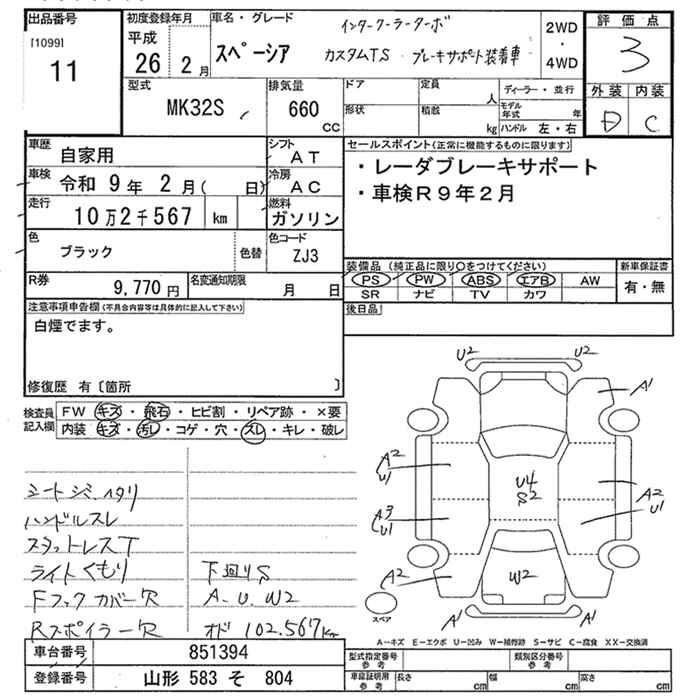 出品番号
[1099]
11
初度登録年月
平成
26 2 月
車名・グレード
スペーシア
インタークーラーターボ
カスタムTS ブレーキサポート装着車
2WD
・
4WD
評価点
3
外装 内装
D C
型式
MK32S
排気量
660
CC
ドア
形状
定員
人
積載
kg
ディーラー・並行
モデル年式 年
ハンドル 左・右
車歴
自家用
シフト
AT
車検
令和 9年 2月( 日)
冷房
AC
走行
10万2千567 km
燃料
ガソリン
色
ブラック
色替
色コード
ZJ3
R券
9,770 円
名変通知期限
月 日
セールスポイント(正常に機能するものに限ります)
・レーダブレーキサポート
・車検R9年2月
装備品(純正品に限り○をつけてください)
PS PW ABS エアB AW
SR ナビ TV カワ
新車保証書
有・無
後日品
注意事項申告欄(不具合内容等は具体的に記入して下さい)
白煙でます。
修復歴 有〔箇所 〕
検査員記入欄
FW キズ・飛石・ヒビ割・リペア跡・×要
内装 キズ・汚レ・コゲ・穴・スレ・キレ・破レ
シートジミ、ヘタリ
ハンドルスレ
スタットレスT
ライトくもり
Fフックカバー欠
Rスポイラー欠
下廻りS
A.U.W2
オド 102.567km
U2 U2
A1
A2
U1
U4
S2
A2
U1
A3
U1
A2
W2
A1 A1
スペア
A－キズ E－エクボ U－凹み W－補修跡 S－サビ C－腐食 XX－交換済
車台番号
851394
登録番号
山形 583 そ 804
型式指定番号
参考
類別区分番号
参考
車庫証明用
参考
長さ cm
幅 cm
高さ cm